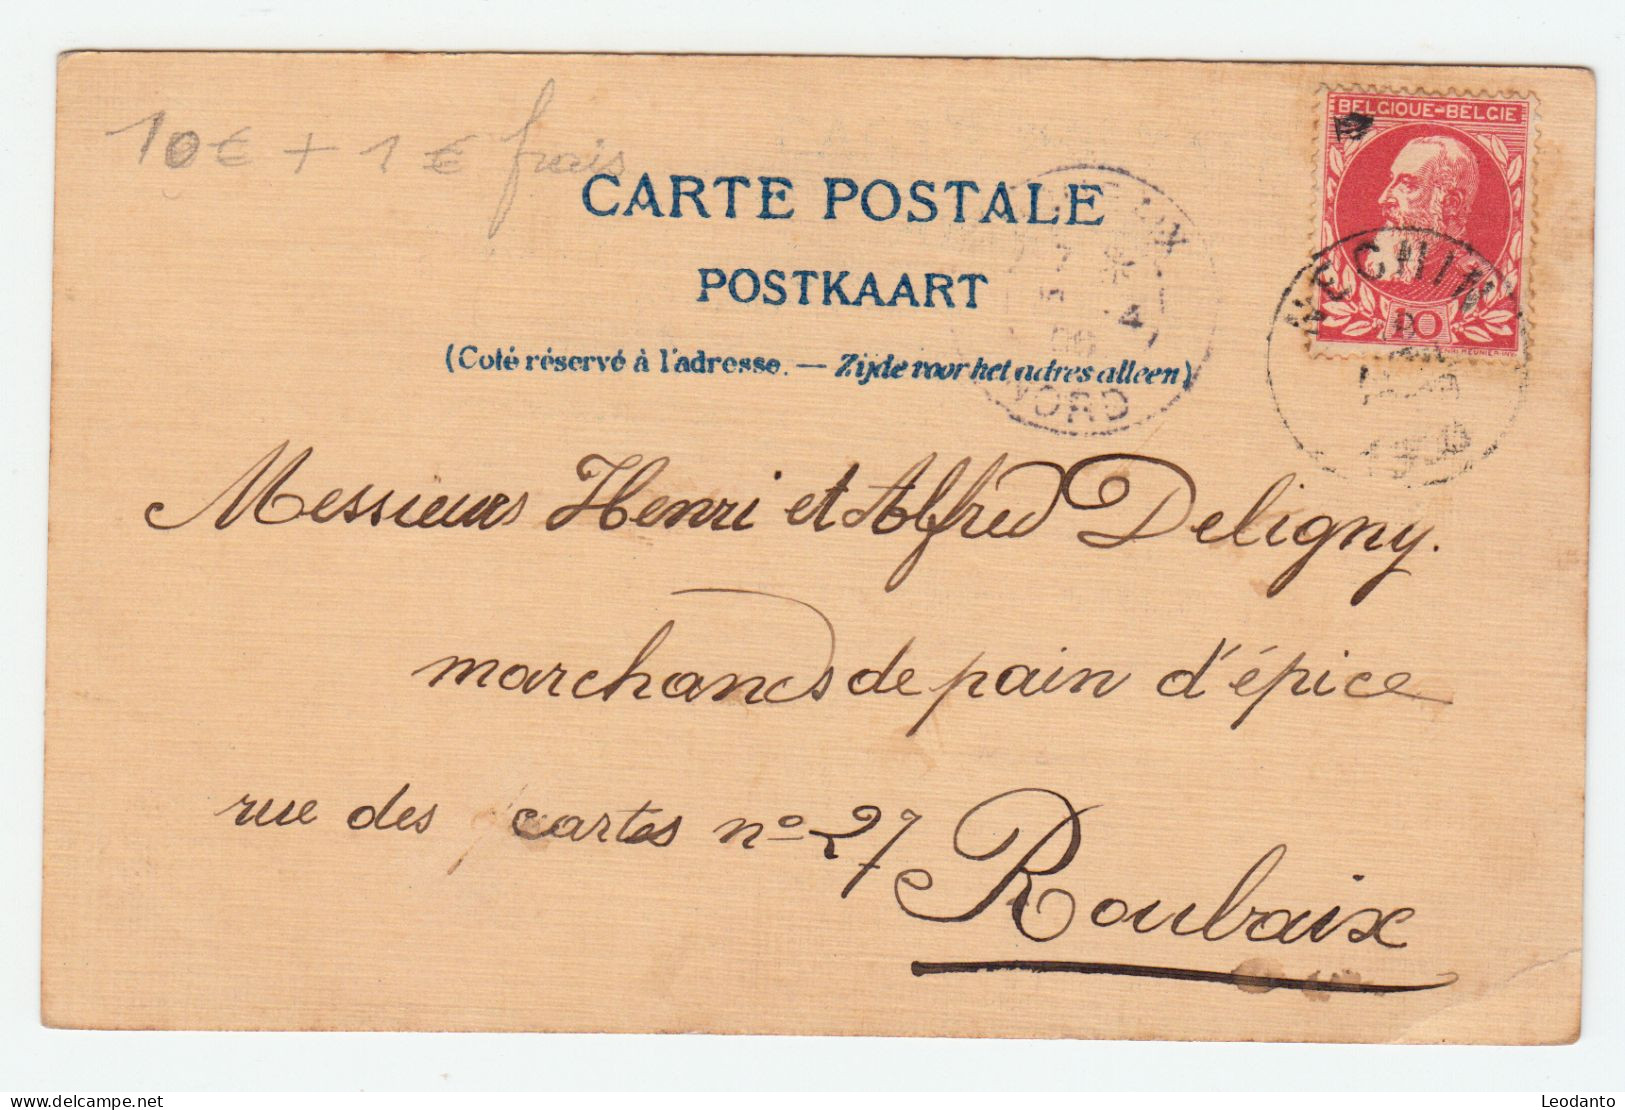 10€ + 1€ frais
BELGIQUE-BELGIE
10
CARTE POSTALE
POSTKAART
(Coté réservé à l'adresse. — Zijde voor het adres alleen)
NORD
Messieurs Henri et Alfred Deligny.
marchands de pain d'épice
rue des cartes nº 27
Roubaix
Leodanto